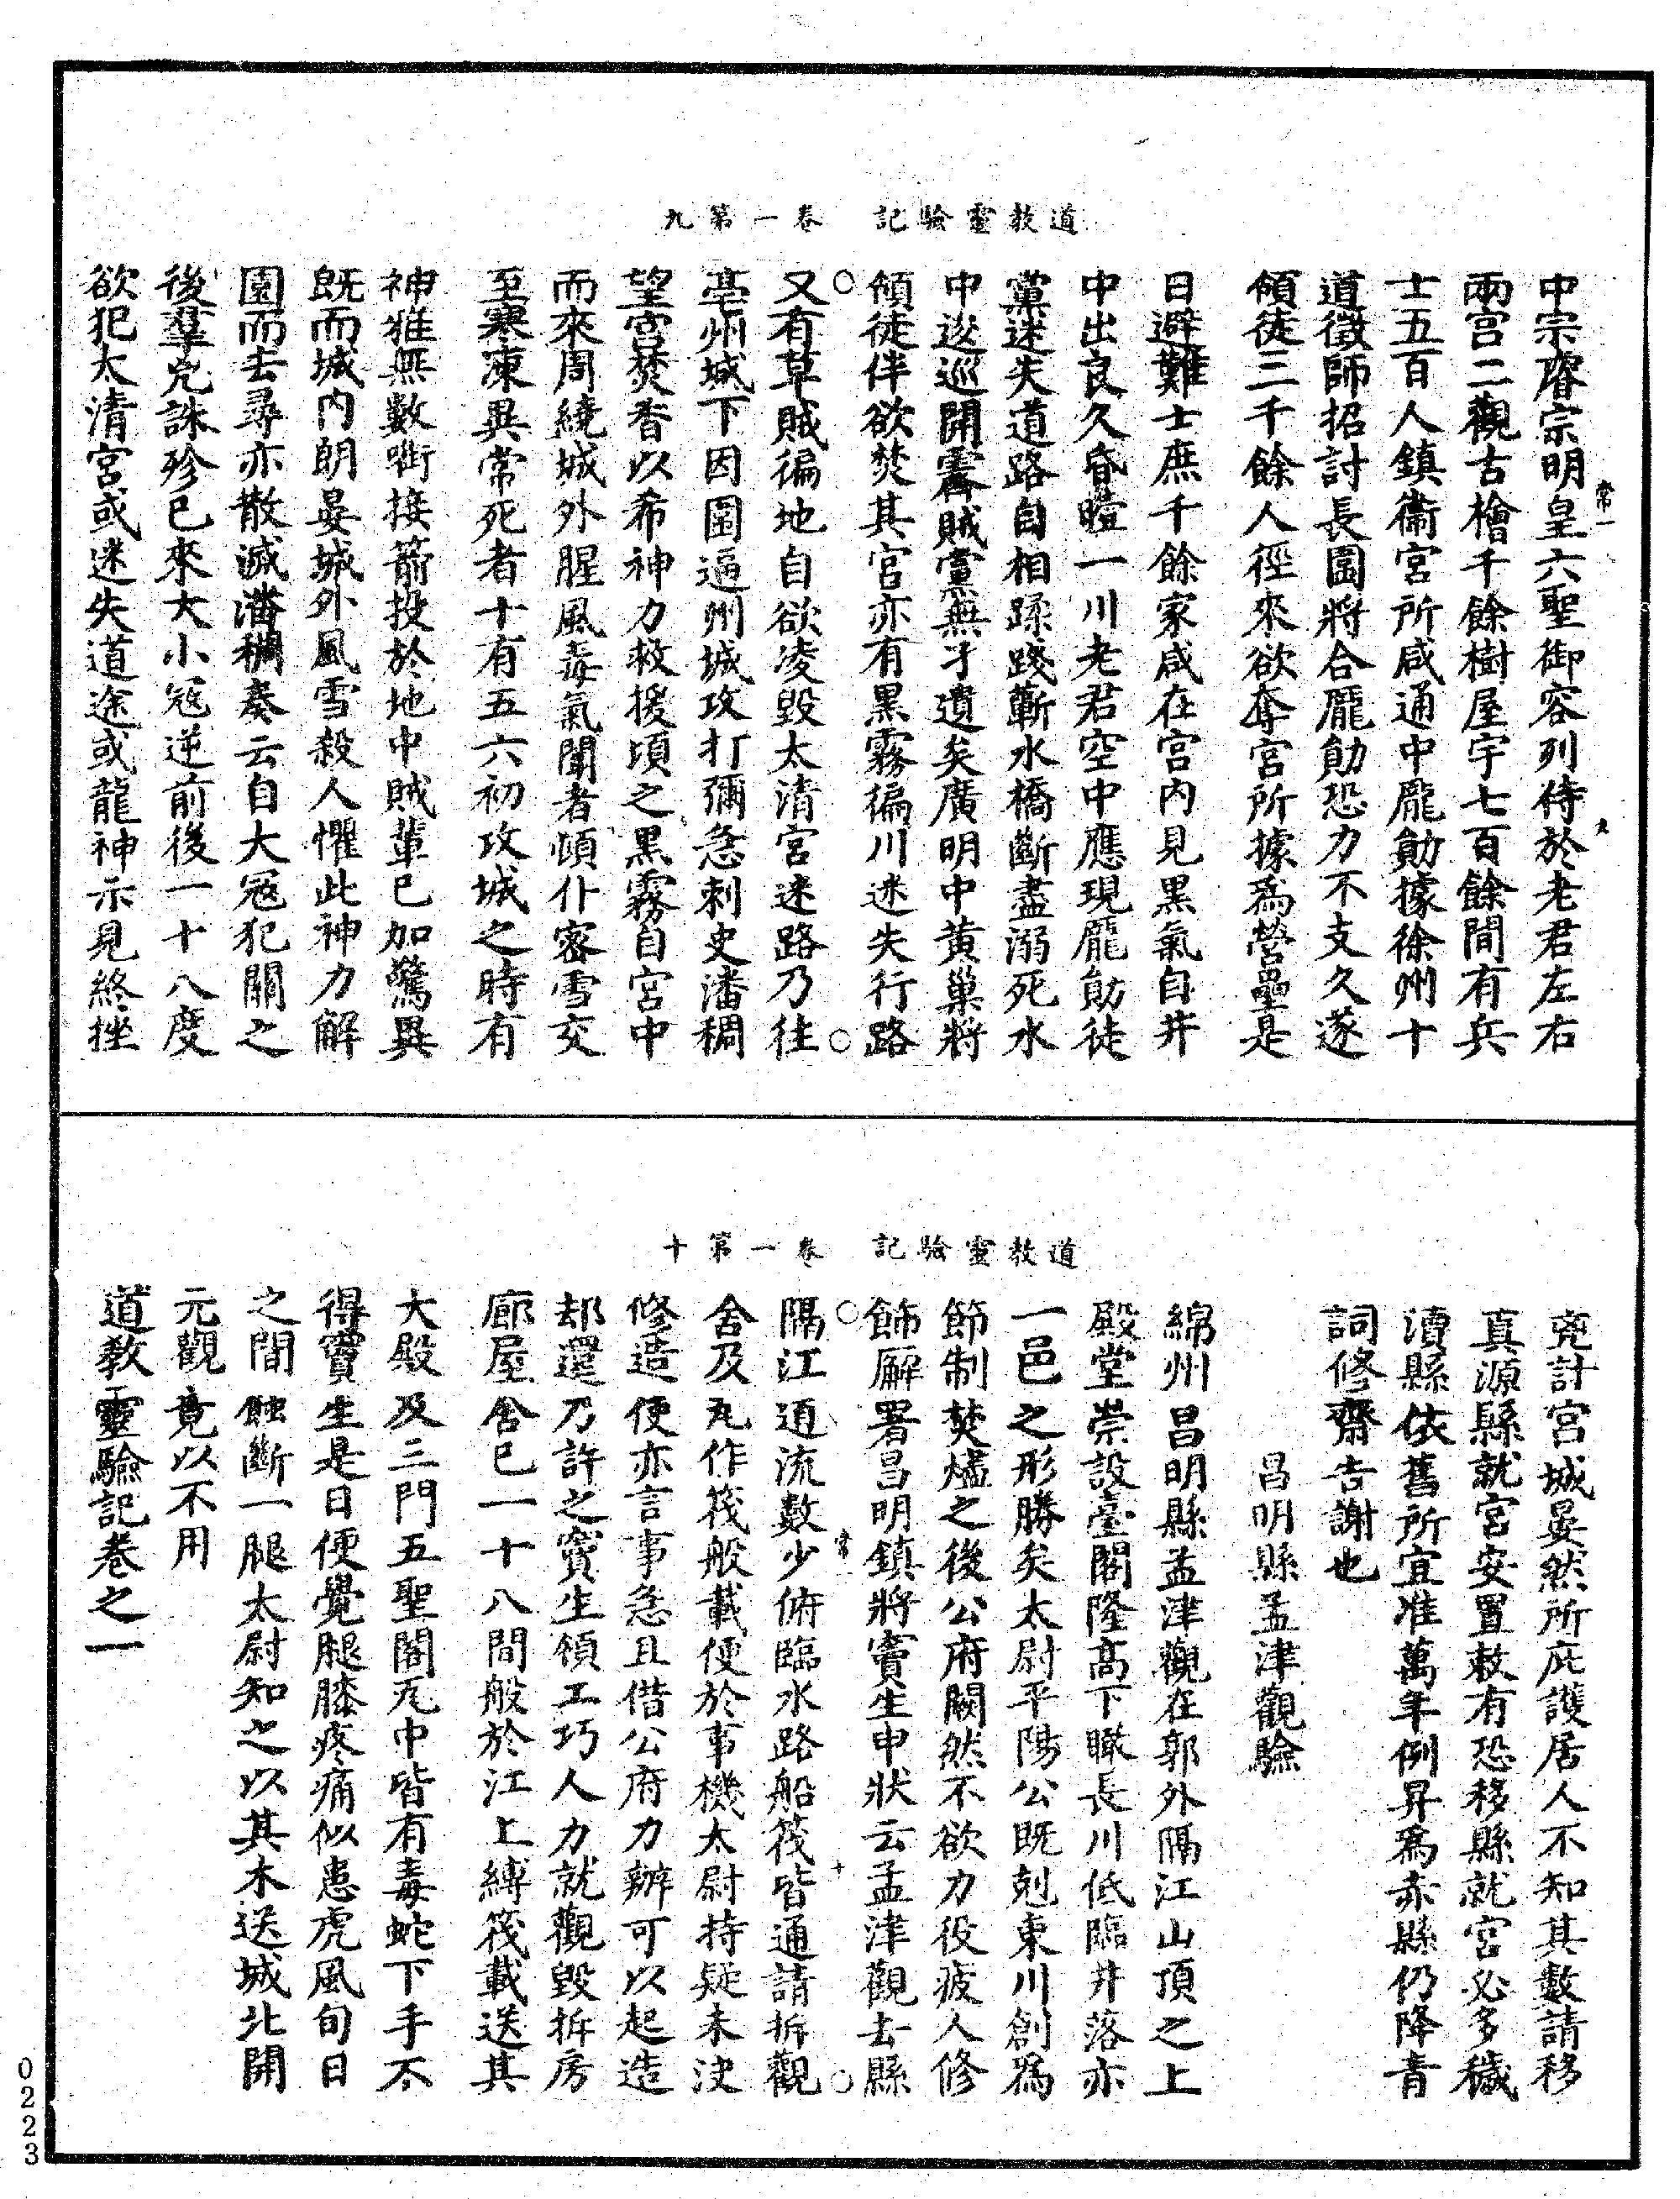 道教靈驗記　卷一第九
中宗睿宗明皇六聖御容列侍於老君左右
兩宮二觀古檜千餘樹屋宇七百餘間有兵
士五百人鎮衞宮所咸通中龐勛據徐州十
道徵師招討長圍將合龐勛恐力不支久遂
傾徒三千餘人徑來欲奪宮所據爲營壘是
日避難士庶千餘家咸在宮內見黑氣自井
中出良久昏曀一川老君空中應現龐勛徒
黨迷失道路自相蹂踐蘄水橋斷盡溺死水
中逡巡開霽賊黨無孑遺矣廣明中黃巢將
傾徒伴欲焚其宮亦有黑霧徧川迷失行路
又有草賊徧地自欲凌毀太清宮迷路乃往
亳州城下因圍逼州城攻打彌急刺史潘稠
望宮焚香以希神力救援頃之黑霧自宮中
而來周繞城外腥風毒氣聞者頓仆密雪交
至寒凍異常死者十有五六初攻城之時有
神鴉無數銜接箭投於地中賊輩已加驚異
旣而城內朗晏城外風雪殺人懼此神力解
圍而去尋亦散滅潘稠奏云自大冦犯闕之
後羣兇誅殄已來大小冦逆前後一十八度
欲犯太清宮或迷失道途或龍神示見終挫
常一
九
道教靈驗記　卷一第十
兇計宮城晏然所庇護居人不知其數請移
真源縣就宮安置敕有恐移縣就宮必多穢
瀆縣依舊所宜准萬年例昇爲赤縣仍降青
詞修齋告謝也
昌明縣孟津觀驗
綿州昌明縣孟津觀在郭外隔江山頂之上
殿堂崇設臺閣隆高下瞰長川低臨井落亦
一邑之形勝矣太尉平陽公既剋東川創爲
節制焚爐之後公府闕然不欲力役疲人修
飾廨署昌明鎮將竇生申狀云孟津觀去縣
隔江迊流數少俯臨水路船筏皆通請拆觀
舍及瓦作筏般載便於事機太尉持疑未決
修造便亦言事急且借公府力辦可以起造
却還乃許之竇生領工巧人力就觀毀拆房
廊屋舍已一十八間般於江上縛筏載送其
大殿及三門五聖閣瓦中皆有毒蛇下手不
得竇生是日便覺腿膝疼痛似患虎風旬日
之間蝕斷一腿太尉知之以其木送城北開
元觀竟以不用
道教靈驗記卷之一
常一
十
0223